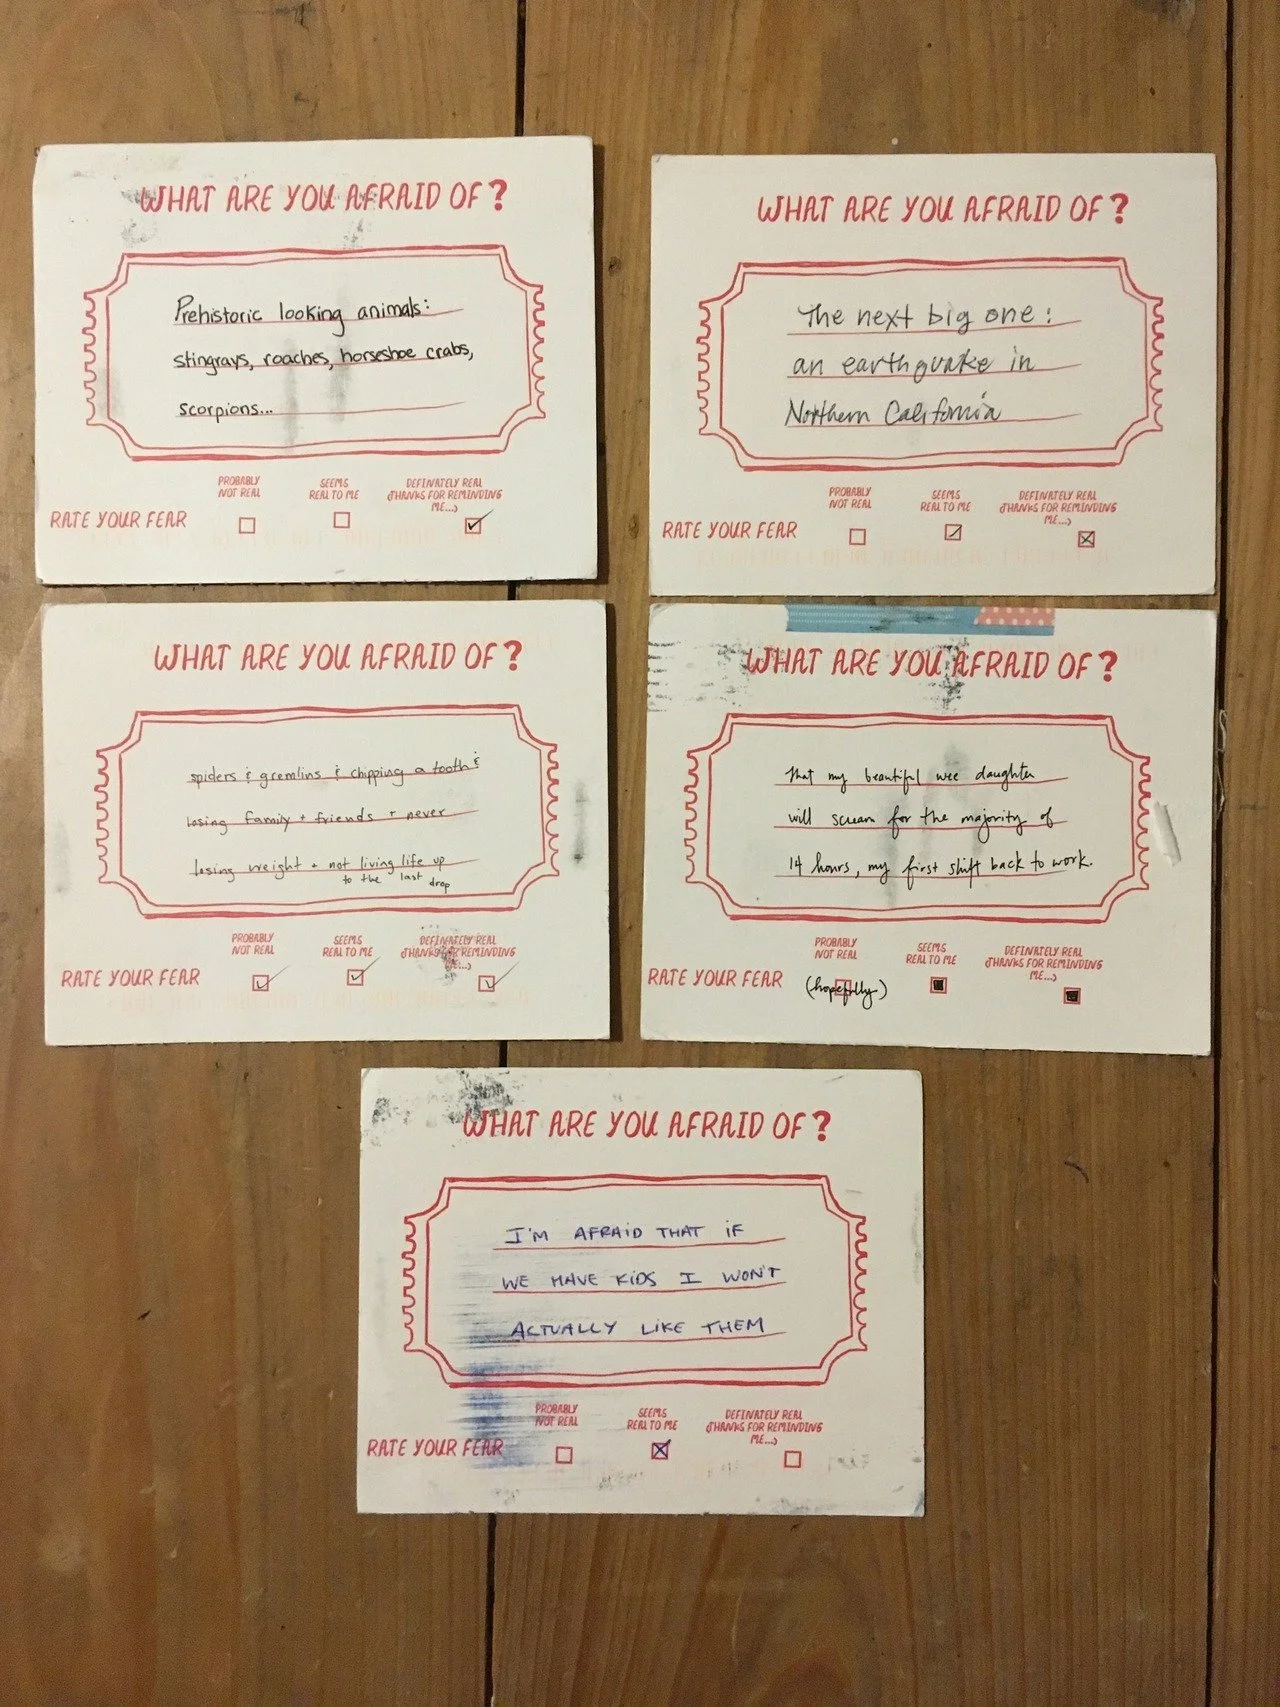 WHAT ARE YOU AFRAID OF?
Prehistoric looking animals:
stingrays, roaches, horseshoe crabs,
scorpions...
PROBABLY
NOT REAL
SEEMS
REAL TO ME
DEFINATELY REAL
(THANKS FOR REMINDING
ME...)
RATE YOUR FEAR
WHAT ARE YOU AFRAID OF?
The next big one:
an earthquake in
Northern California
PROBABLY
NOT REAL
SEEMS
REAL TO ME
DEFINATELY REAL
(THANKS FOR REMINDING
ME...)
RATE YOUR FEAR
WHAT ARE YOU AFRAID OF?
spiders & gremlins & chipping a tooth &
losing family + friends + never
losing weight + not living life up
to the last drop
PROBABLY
NOT REAL
SEEMS
REAL TO ME
DEFINATELY REAL
(THANKS FOR REMINDING
ME...)
RATE YOUR FEAR
WHAT ARE YOU AFRAID OF?
that my beautiful wee daughter
will scream for the majority of
14 hours, my first shift back to work.
PROBABLY
NOT REAL
SEEMS
REAL TO ME
DEFINATELY REAL
(THANKS FOR REMINDING
ME...)
RATE YOUR FEAR
(hopefully)
WHAT ARE YOU AFRAID OF?
I'M AFRAID THAT IF
WE HAVE KIDS I WON'T
ACTUALLY LIKE THEM
PROBABLY
NOT REAL
SEEMS
REAL TO ME
DEFINATELY REAL
(THANKS FOR REMINDING
ME...)
RATE YOUR FEAR